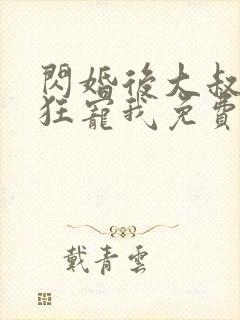 閃婚後大叔
狂寵我免費
戴青雲